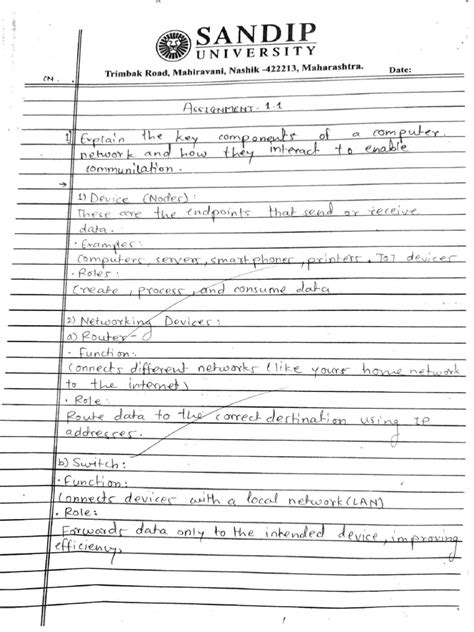 SANDIP
UNIVERSITY
Trimbak Road, Mahiravani, Nashik -422213, Maharashtra.
Date:
CN.
ASSIGNMENT - 1.1
1) Explain the key components of a computer
network and how they interact to enable
communication.
→
1) Device (Nodes):
These are the endpoints that send or receive
data.
· Examples:
Computers, servers, smart phones, printers. IoT devices
· Roles:
Create, process, and consume data
2) Networking Devices:
a) Router-
· Function:
Connects different networks (like yours home network
to the internet)
· Role:
Route data to the correct destination using IP
addresses.
b) Switch:
· Function:
Connects devices with a local network (LAN)
· Role:
Forwards data only to the intended device, improving
efficiency.
1